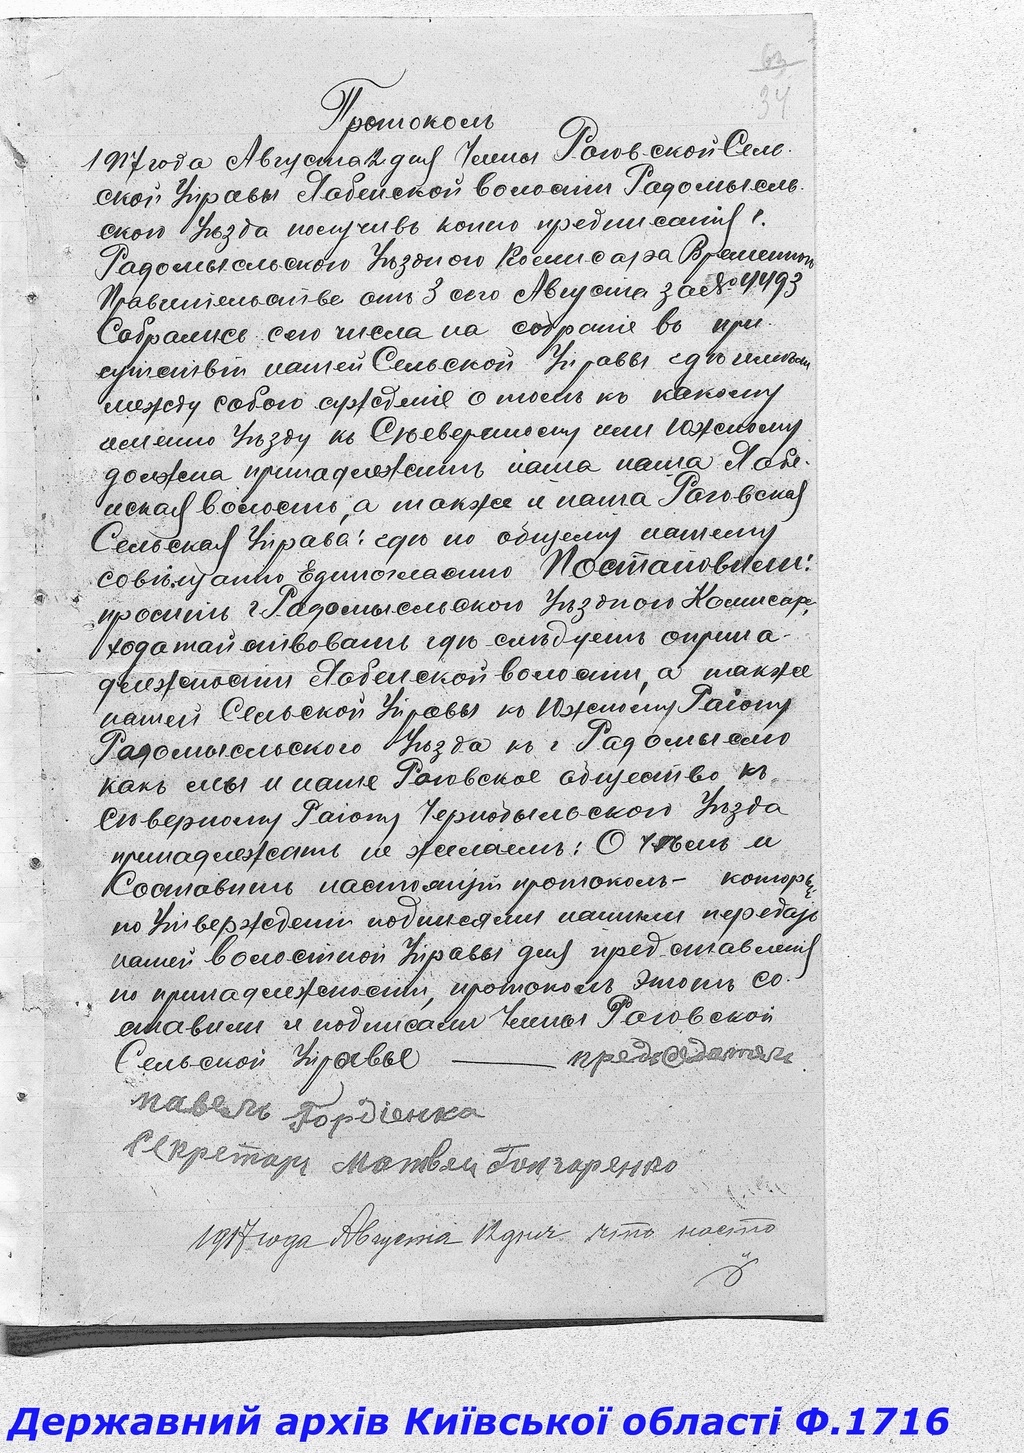 63
34
Протоколъ
1917 года Августа 12 дня Члены Рогов-ской Сель-
ской Управы Хабенской волости Радомысль-
ского Уезда получивъ копию предписания г.
Радомысльского Уездного Комисара Временнаго
Правительства отъ 3 сего Августа за № 4493
Собрались сего числа на собрание въ при-
сутствіи нашей Сельской Управы где имели
между собою суждение о томъ къ какому
именно Уезду къ Северному или Южному
должна принадлежать наша наша Хабе-
нская волость, а также и наша Роговская
Сельская Управа: где по общему нашему
совещанию Единогласно Постановили:
просить г. Радомысльского Уездного Комисара,
ходатайствовать где следуетъ о прина-
длежности Хабенской волости, а также
нашей Сельской Управы къ Южному Раіону
Радомысльского Уезда къ г. Радомыслю
какъ мы и наше Роговское общество къ
Северному Раіону Чернобыльского Уезда
принадлежать не желаемъ: О чѣмъ и
Составить настоящій протоколъ – который
по Утверждении подписями нашими передать
нашей волостной Управы для представления
по принадлежности, протоколъ этотъ со-
ставили и подписали Члены Роговской
Сельской Управы — председатель
павелъ Гордіенка
Секретарь Матвей Гончаренко
1917 года Августа 12 дня что насто
Державний архів Київської області Ф.1716